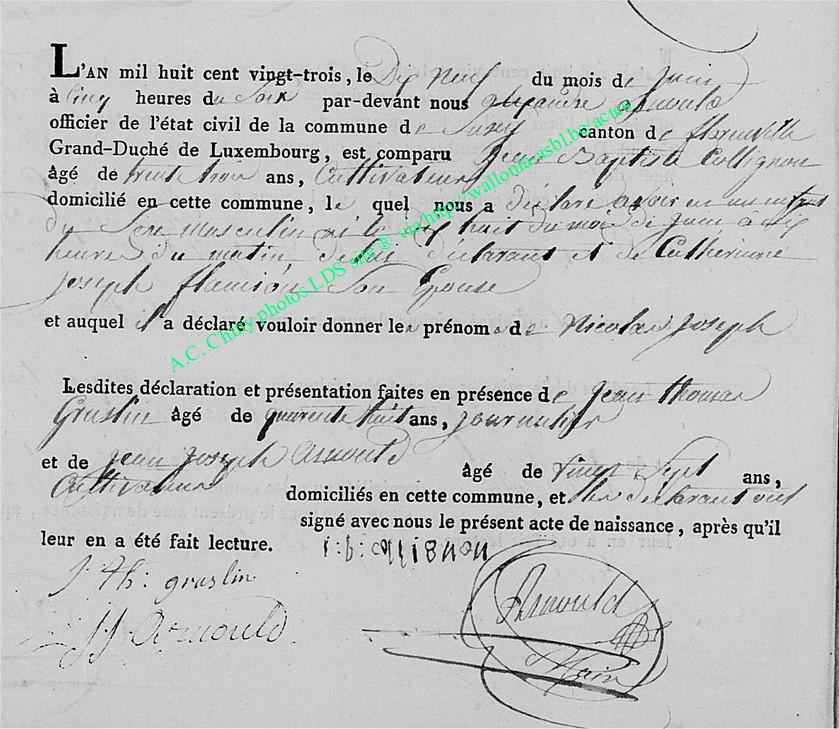 L'AN mil huit cent vingt-trois, le Dix neuf du mois de juin
à Cinq heures du Soir par-devant nous alexandre arnould
officier de l'état civil de la commune de Suxy canton de florenville
Grand-Duché de Luxembourg, est comparu Jean Baptiste Collignon
âgé de trente trois ans, Cultivateur
domicilié en cette commune, le quel nous a déclaré avoir eu un enfant
du Sexe masculin né le dix huit du mois de juin à
heures du matin de lui déclarant et de Catherinne
joseph Son Epouse
et auquel il a déclaré vouloir donner les prénoms de Nicolas joseph
Lesdites déclaration et présentation faites en présence de jean thomas
Graslin âgé de quarente huit ans, journalier
et de jean joseph arnould âgé de vingt Sept ans,
Cultivateur domiciliés en cette commune, et les déclarant ont
signé avec nous le présent acte de naissance, après qu'il
leur en a été fait lecture. j:b:collignon
J. th: graslin
JJ arnould
Arnould
Maire
A.C. Chiny photos LDS site ® via http://wallonia-asbl.be/actes